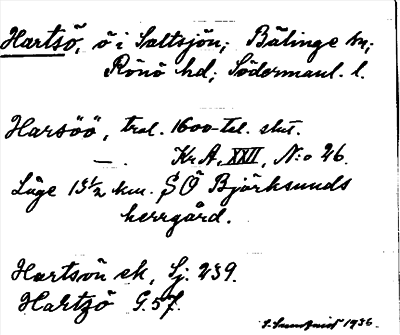 Hartsö, ö i Saltsjön; Bälinge sn;
Rönö hd; Södermanl. l.
Harsöö, trol. 1600-tal. slut.
— . Kr.A. XXII, N:o 26.
Läge 15½ km. SÖ Björksunds
herrgård.
Hartsön ek, Sj. 239.
Hartzö G.57.
1936.